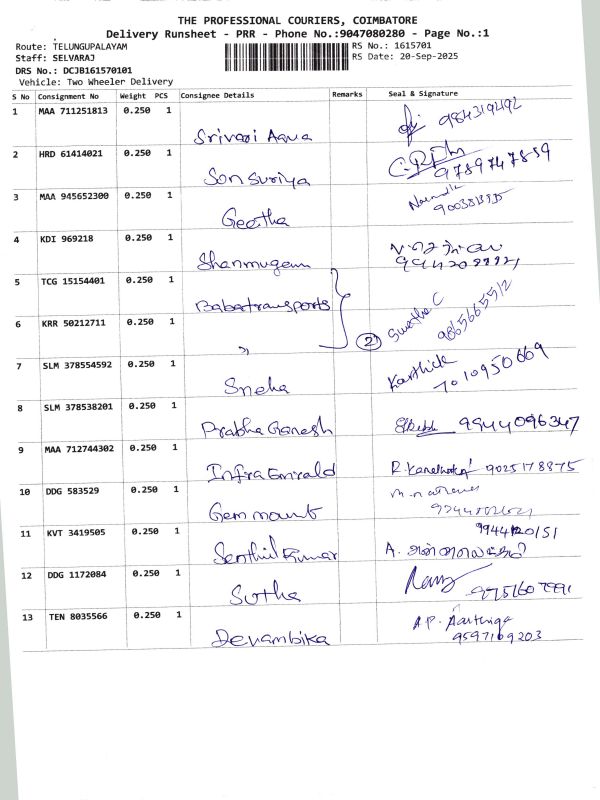 THE PROFESSIONAL COURIERS, COIMBATORE
Delivery Runsheet - PRR - Phone No.:9047080280 - Page No.:1
Route: TELUNGUPALAYAM
RS No.: 1615701
Staff: SELVARAJ
RS Date: 20-Sep-2025
DRS No.: DCJB161570101
Vehicle: Two Wheeler Delivery
S No Consignment No Weight PCS Consignee Details Remarks Seal & Signature
1 MAA 711251813 0.250 1
Srivari Aqua 984319492
2 HRD 61414021 0.250 1
Son Suriya 9789747859
3 MAA 945652300 0.250 1
Geetha
4 KDI 969218 0.250 1
Shanmugam
5 TCG 15154401 0.250 1
Babatransports
6 KRR 50212711 0.250 1
" 2 Swetha C 9865665512
7 SLM 378554592 0.250 1
Sneha Karthick 7010950669
8 SLM 378538201 0.250 1
Prabha Ganesh 9944096347
9 MAA 712744302 0.250 1
Infra Emrald 9025178875
10 DDG 583529 0.250 1
Gem mount
11 KVT 3419505 0.250 1
Senthil Kumar A.
12 DDG 1172084 0.250 1
Sutha
13 TEN 8035566 0.250 1
Devambika A.P. Aarthiga
9597169203